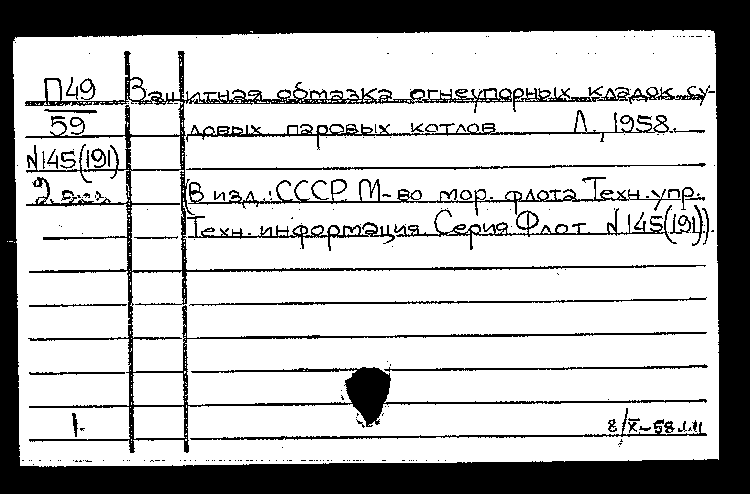 П49
59
N145(191)
2 экз.
Защитная обмазка огнеупорных кладок су-
довых паровых котлов Л., 1958.
(В изд.: СССР. М-во мор. флота Техн. упр.
Техн. информация. Серия Флот N145(191)).
1.
8/X-58